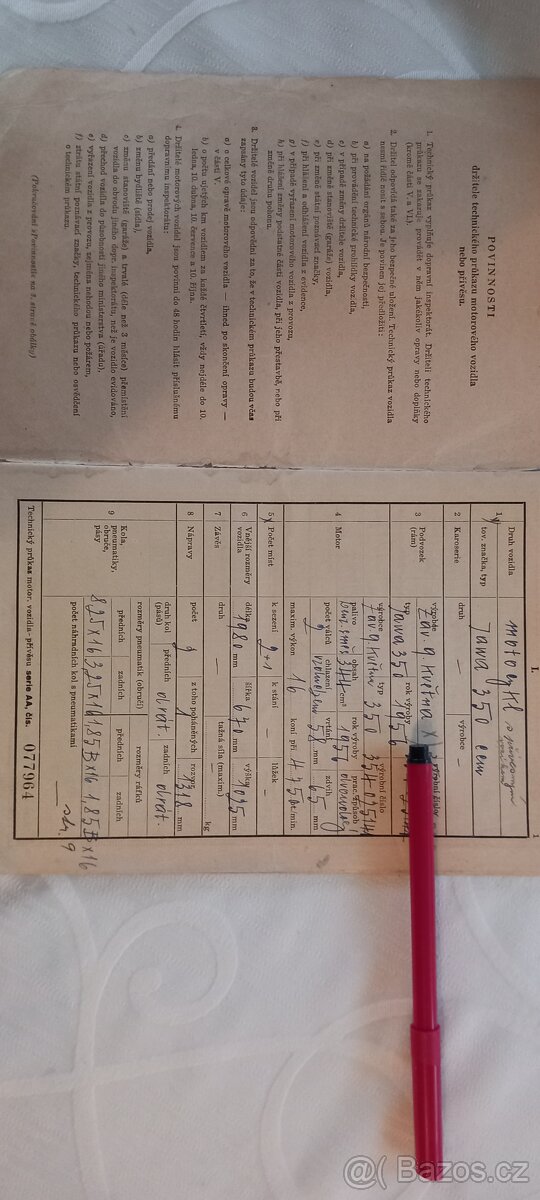 POVINNOSTI
držitele technického průkazu motorového vozidla
nebo přívěsu.
1. Technický průkaz vyplňuje dopravní inspektorát. Držiteli technického
průkazu se zakazuje provádět v něm jakékoliv opravy nebo doplňky
(kromě části V. a VI.).
2. Držitel odpovídá také za jeho bezpečné uložení. Technický průkaz vozidla
není řidič nosit s sebou. Je povinen jej předložiti:
a) na požádání orgánů národní bezpečnosti,
b) při provádění technické prohlídky vozidla,
c) v případě změny držitele vozidla,
d) při změně stanoviště (garáže) vozidla,
e) při změně státní poznávací značky,
f) při hlášení a odhlášení vozidla z evidence,
g) v případě vyřízení motorového vozidla z provozu,
h) při hlášení změny podstatné části vozidla, při jeho přestavbě, nebo při
změně druhu pohonu.
3. Držitelé vozidel jsou odpovědni za to, že v technickém průkazu budou včas
zapsány tyto údaje:
a) o celkové opravě motorového vozidla — ihned po skončení opravy —
v části V.
b) o počtu ujetých km vozidlem za každé čtvrtletí, vždy nejdéle do 10.
ledna, 10. dubna, 10. července a 10. října.
4. Držitelé motorových vozidel jsou povinni do 48 hodin hlásit příslušnému
dopravnímu inspektorátu:
a) předání nebo prodej vozidla,
b) změnu bydliště (sídla),
c) změnu stanoviště (garáže) a trvalé (déle než 3 měsíce) přemístění
vozidla do obvodu jiného dopr. inspektorátu, než je vozidlo evidováno,
d) přechod vozidla do působnosti jiného ministerstva (úřadu),
e) vyřazení vozidla z provozu, zejména nehodou nebo požárem,
f) ztrátu státní poznávací značky, technického průkazu nebo osvědčení
o technickém průkazu.
(Pokračování »Povinnosti« na 3. straně obálky)
I.
1
1 Druh vozidla motocykl
tov. značka, typ Jawa 350 ccm
2 Karoserie druh — výrobce —
3 Podvozek (rám) výrobce Záv. 9 května
typ Jawa 350 rok výroby 1956
4 Motor výrobce Záv 9 květn typ 350 výrobní číslo 354-02514
palivo obsah 344 cm³ rok výroby 1956 prac. způsob
počet válců 2 chlazení vrtání 58 mm zdvih 65 mm
maxim. výkon 16 koní při 4750 ot/min.
5 Počet míst k sezení 2+1 k stání — lůžek —
6 Vnější rozměry vozidla délka 1980 mm šířka 670 mm výška 1035 mm
7 Závěs druh — tažná síla (maxim.) kg
8 Nápravy počet 2 z toho poháněných 1 rozvor 1318 mm
9 Kola, pneumatiky, obruče, pásy
druh kol (pásů) předních otvrát. zadních otvrát.
rozměry pneumatik (obručí) rozměry ráfků
předních zadních předních zadních
3,25x16 1,85 B x16 1,85 B x16
počet náhradních kol s pneumatikami
Technický průkaz motor. vozidla - přívěsu serie AA, čís. 077964
Bazos.cz